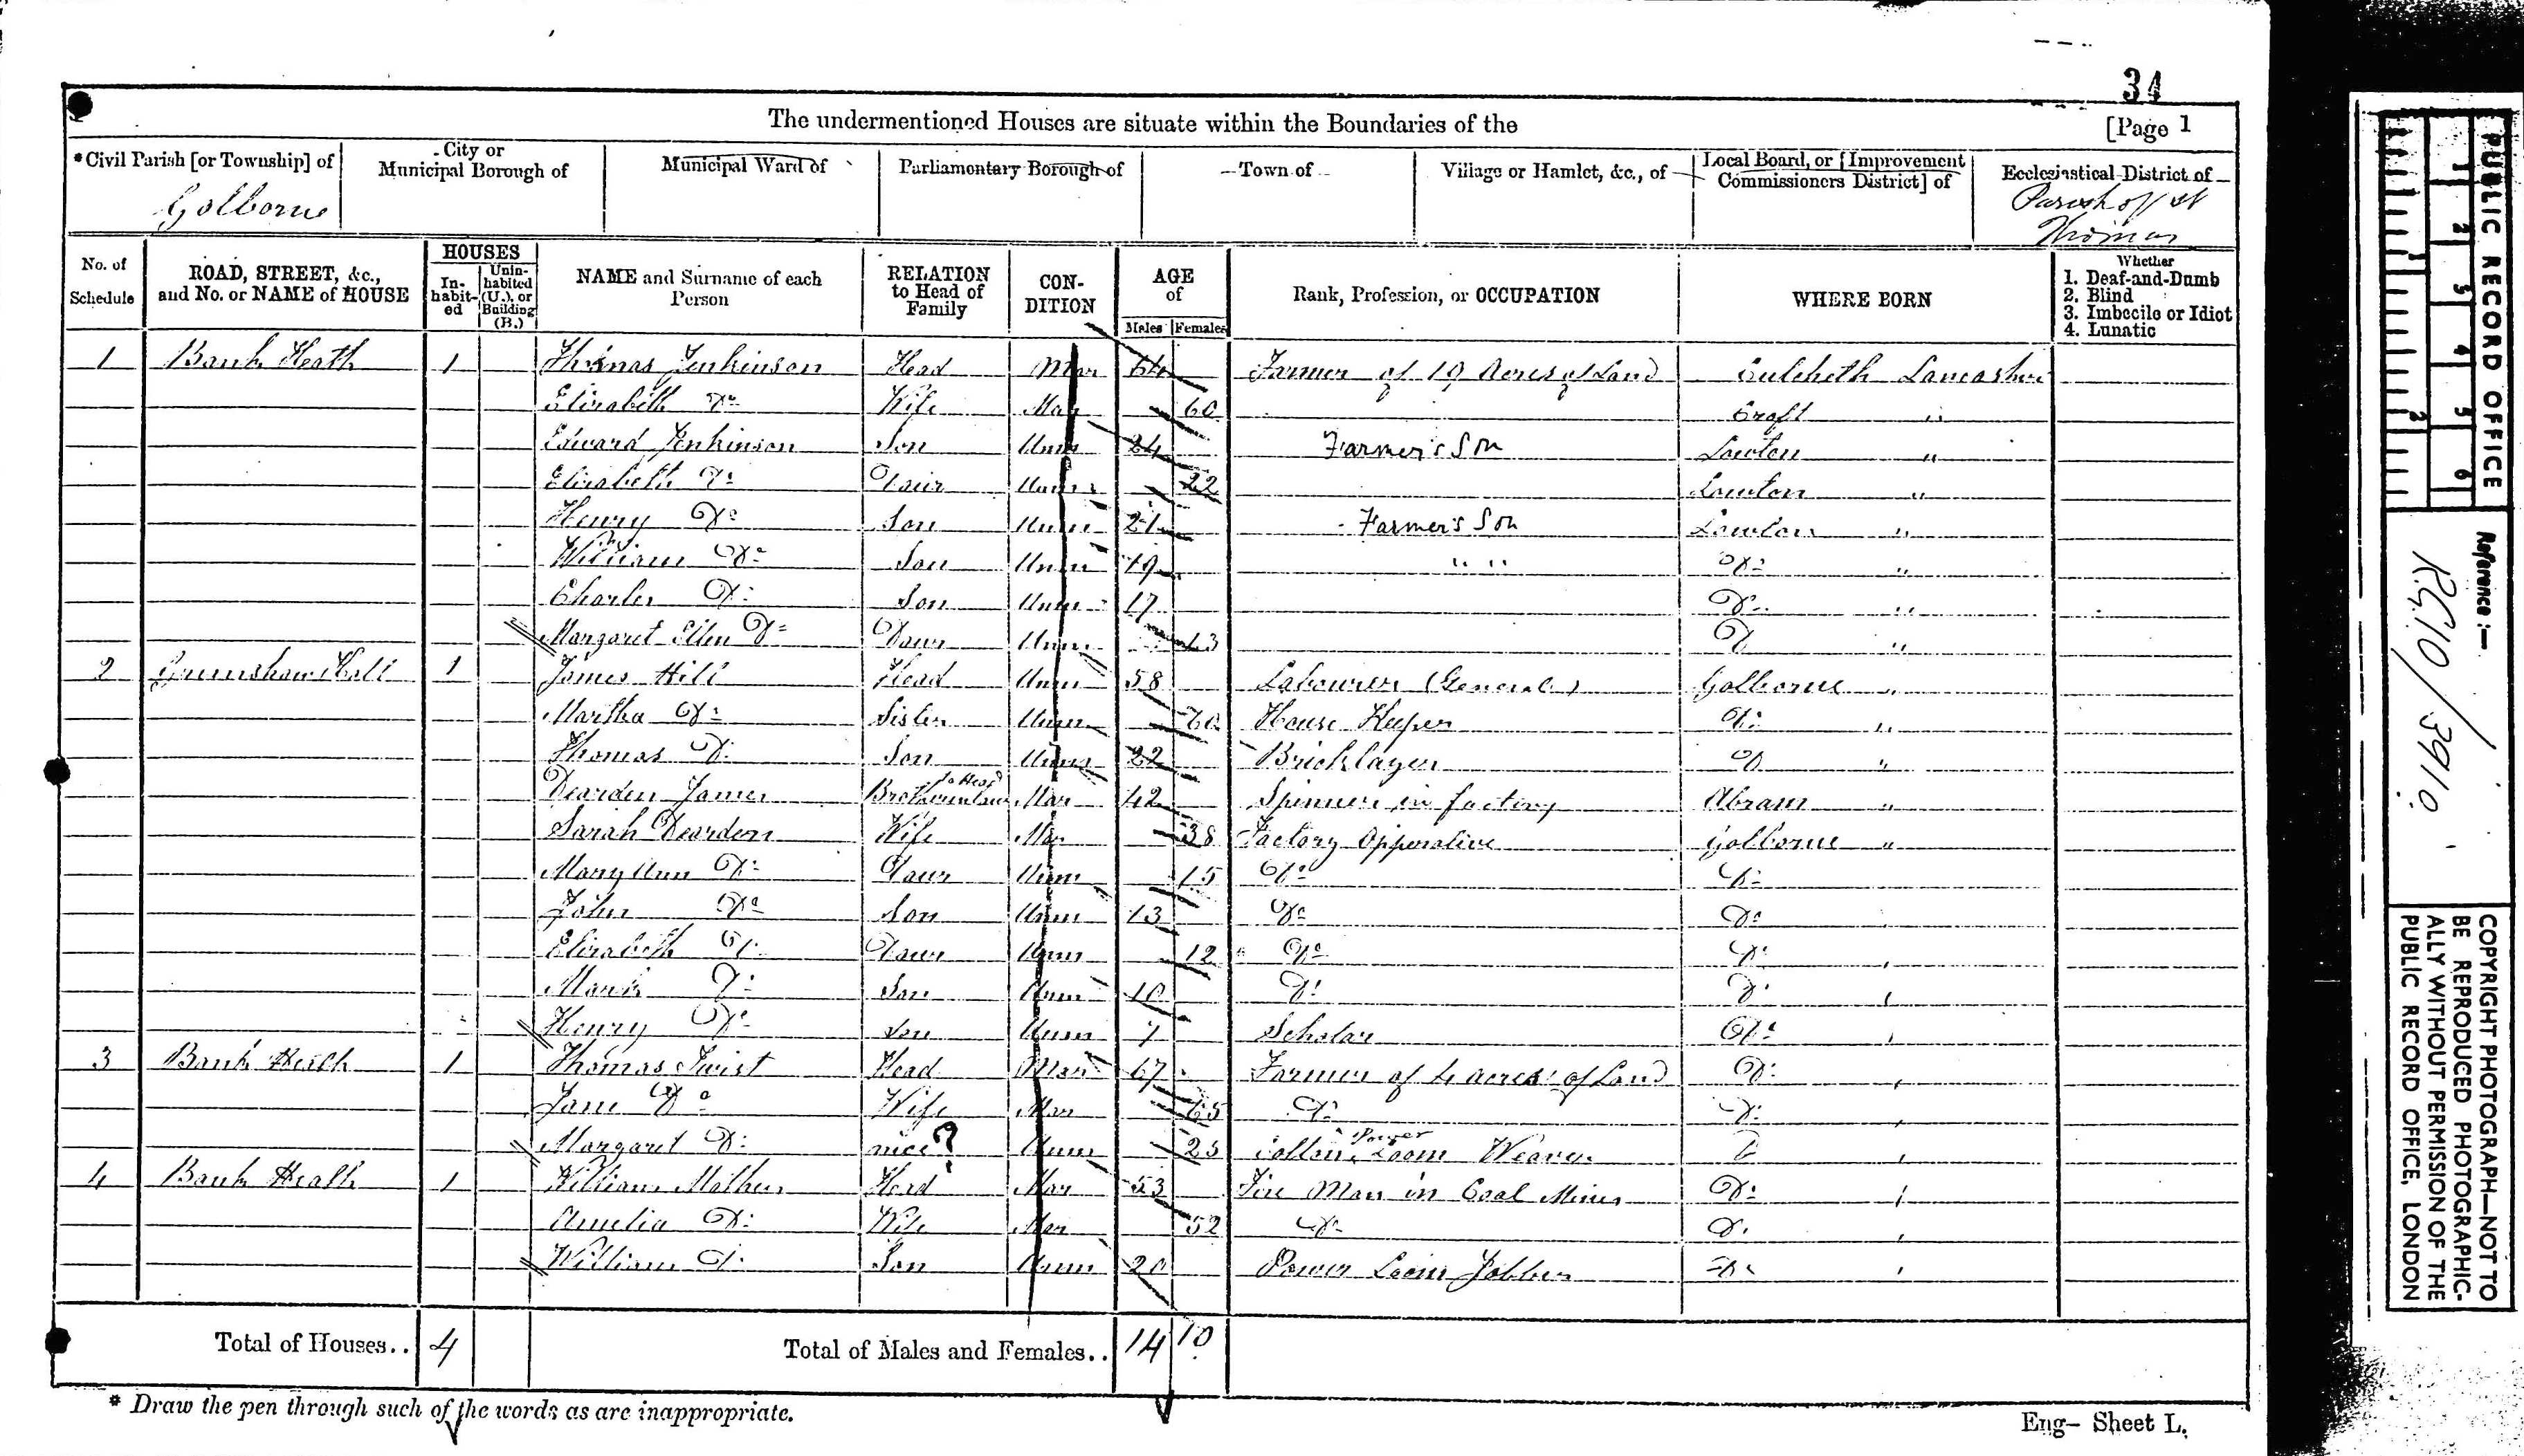 34
The undermentioned Houses are situate within the Boundaries of the [Page 1
*Civil Parish [or Township] of
Golborne
City or Municipal Borough of
Municipal Ward of
Parliamentary Borough of
Town of
Village or Hamlet, &c., of
Local Board, or [Improvement Commissioners District] of
Ecclesiastical District of
Parish of St
Thomas
No. of Schedule
ROAD, STREET, &c., and No. or NAME of HOUSE
HOUSES
In-habit-ed
Unin-habited (U.), or Building (B.)
NAME and Surname of each Person
RELATION to Head of Family
CON-DITION
AGE of
Males Females
Rank, Profession, or OCCUPATION
WHERE BORN
Whether
1. Deaf-and-Dumb
2. Blind
3. Imbecile or Idiot
4. Lunatic
1 Bank Heath 1 Thomas Jenkinson Head Mar 64 Farmer of 19 Acres of Land Culcheth Lancashire
Elizabeth Do Wife Mar 60 Croft "
Edward Jenkinson Son Unm 24 Farmer's Son Lowton "
Elizabeth Do Daur Unm 22 Lowton "
Henry Do Son Unm 21 Farmer's Son Lowton "
William Do Son Unm 19 " " Do "
Charles Do Son Unm 17 Do "
Margaret Ellen Do Daur Unm 13 Do "
2 Grimshaw Hall 1 James Hill Head Unm 58 Labourer (General) Golborne "
Martha Do Sister Unm 60 House Keeper Do "
Thomas Do Son Unm 22 Bricklayer Do "
Dearden James Brother in law to Head Mar 42 Spinner in factory Abram "
Sarah Dearden Wife Mar 38 Factory Opperative Golborne "
Mary Ann Do Daur Unm 15 Do Do
John Do Son Unm 13 Do Do
Elizabeth Do Daur Unm 12 Do Do
Mark Do Son Unm 10 Do Do
Henry Do Son Unm 7 Scholar Do
3 Bank Heath 1 Thomas Twist Head Mar 67 Farmer of 4 acres of Land Do
Jane Do Wife Mar 65 Do Do
Margaret Do nice? Unm 25 Cotton Power Loom Weaver Do
4 Bank Heath 1 William Mather Head Mar 53 Fire Man in Coal Mines Do
Amelia Do Wife Mar 52 Do Do
William Do Son Unm 20 Power Loom Jobber Do
Total of Houses.. 4 Total of Males and Females.. 14 10
* Draw the pen through such of the words as are inappropriate.
Eng- Sheet L.
PUBLIC RECORD OFFICE
1 2 3 4 5 6
1 2
Reference:-
R.G.10/3910
COPYRIGHT PHOTOGRAPH—NOT TO
BE REPRODUCED PHOTOGRAPHIC-
ALLY WITHOUT PERMISSION OF THE
PUBLIC RECORD OFFICE, LONDON